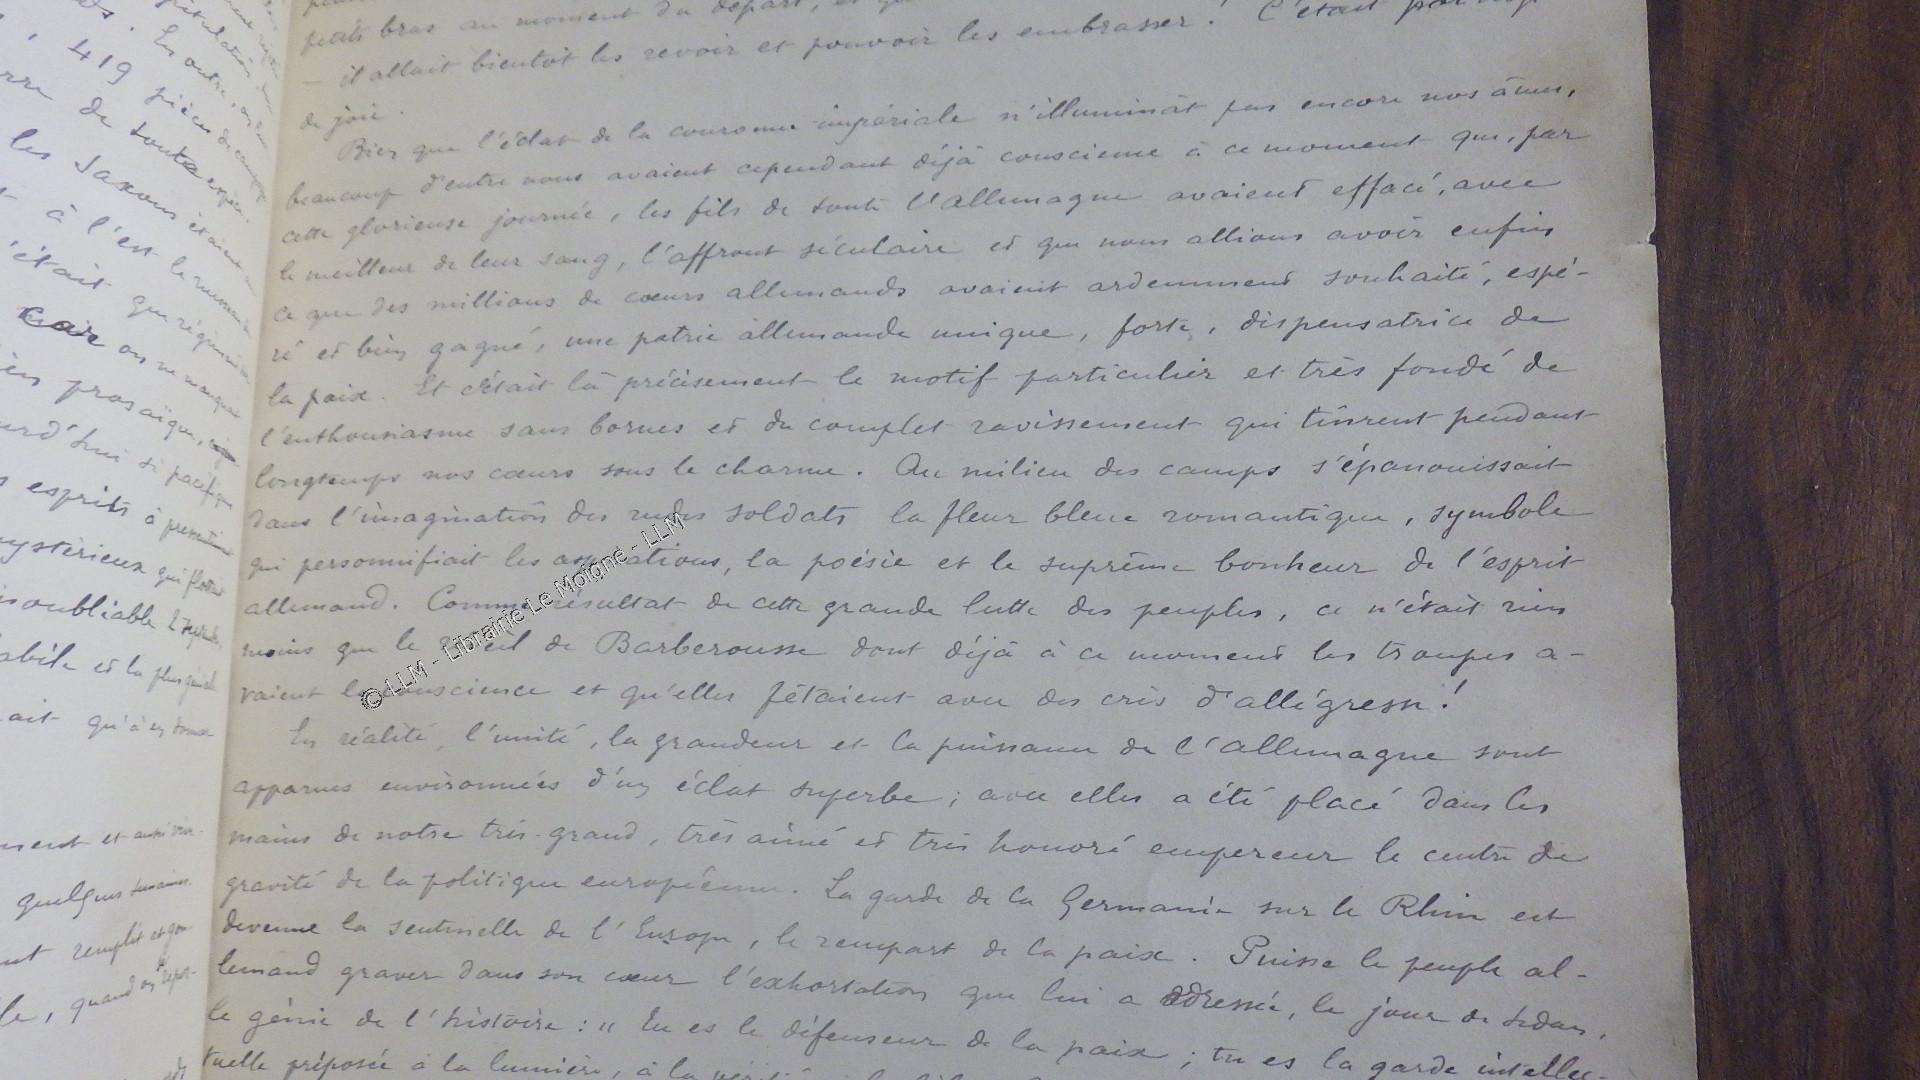 petits bras au moment du départ, et
— il allait bientôt les revoir et pouvoir les embrasser ! C'était par trop
de joie.
Bien que l'éclat de la couronne impériale n'illuminât pas encore nos âmes,
beaucoup d'entre nous avaient cependant déjà conscience à ce moment que, par
cette glorieuse journée, les fils de toute l'allemagne avaient effacé, avec
le meilleur de leur sang, l'affront séculaire et que nous allions avoir enfin
ce que des millions de cœurs allemands avaient ardemment souhaité, espé-
ré et bien gagné, une patrie allemande unique, forte, dispensatrice de
la paix. Et c'était là précisement le motif particulier et très fondé de
l'enthousiasme sans bornes et du complet ravissement qui tinrent pendant
longtemps nos cœurs sous le charme. Au milieu des camps s'épanouissait
dans l'imagination des rudes soldats la fleur bleue romantique, symbole
qui personnifiait les aspirations, la poésie et le suprême bonheur de l'esprit
allemand. Comme résultat de cette grande lutte des peuples, ce n'était rien
moins que le réveil de Barberousse dont déjà à ce moment les troupes a-
vaient la conscience et qu'elles fêtaient avec des cris d'allégresse !
En réalité, l'unité, la grandeur et la puissance de l'allemagne sont
apparues environnées d'un éclat superbe ; avec elles a été placé dans les
mains de notre très-grand, très aimé et très honoré empereur le centre de
gravité de la politique européenne. La garde de la Germania sur le Rhin est
devenue la sentinelle de l'Europe, le rempart de la paix. Puisse le peuple al-
lemand graver dans son cœur l'exhortation que lui a adressée, le jour de Sedan,
le génie de l'histoire : " Tu es le défenseur de la paix ; tu es la garde intellec-
tuelle préposée à la lumière, à la
419 pièces de campagne
de toute espèce.
les Saxons étaient
à l'est le
c'était que
car on ne
prosaïque,
si pacifique
esprits à
mystérieux qui
inoubliable 2
et la plus
qu'à en
et aussi
quelques semaines.
remplit et
quand on
© LLM - Librairie Le Moigne - LLM